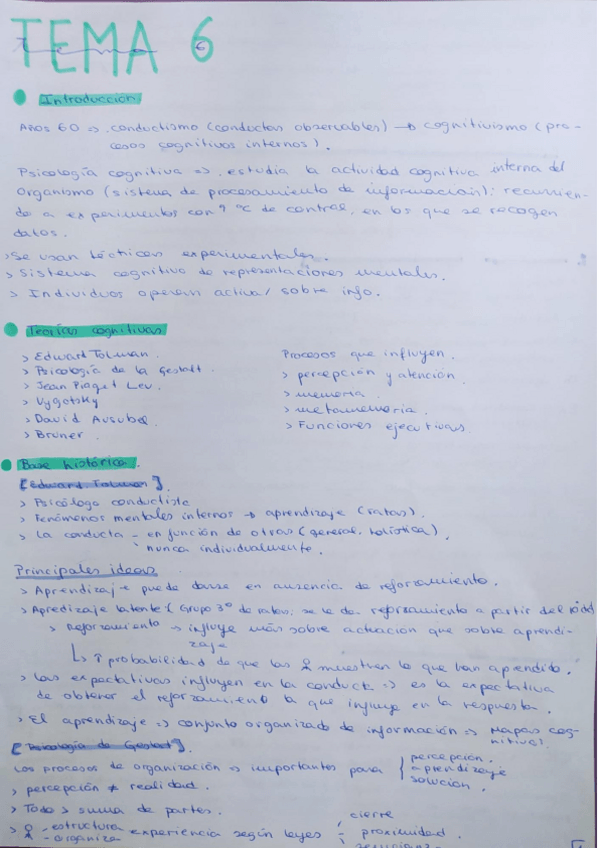 TEMA 6
Tema 6
Introducción
Años 60 => conductismo (conductas observables) → cognitivismo (pro-
cesos cognitivos internos).
Psicología cognitiva => estudia la actividad cognitiva interna del
organismo (sistema de procesamiento de información); recurrien-
do a experimentos con ↑ % de control, en los que se recogen
datos.
> Se usan tácticas experimentales.
> Sistema cognitivo de representaciones mentales.
> Individuos operan activa/ sobre info.
Teorías cognitivas
> Edward Tolman.
> Psicología de la Gestalt.
> Jean Piaget Lev.
> Vygotsky
> David Ausubel
> Bruner.
Procesos que influyen.
> percepción y atención.
> memoria.
> metamemoria.
> Funciones ejecutivas.
Base histórica.
[Edward Tolman].
> Psicólogo conductista
> Fenómenos mentales internos → aprendizaje (ratas).
> La conducta - en función de otras (general, holística).
nunca individualmente.
Principales ideas
> Aprendizaje puede darse en ausencia de reforzamiento.
> Apredizaje latente (Grupo 3º de ratas, se le da reforzamiento a partir del 10 dd
> Reforzamiento → influye más sobre actuación que sobre aprendi-
zaje
↳ ↑ probabilidad de que las muestren lo que han aprendido.
> Las expectativas influyen en la conducta => es la expectativa
de obtener el reforzamiento la que influye en la respuesta.
> El aprendizaje => conjunto organizado de información => Mapas cog-
nitivos.
[Psicología de Gestalt].
Los procesos de organización => importantes para { percepción.
aprendizaje
solución.
> percepción ≠ realidad.
> Todo > suma de partes.
> - estructura
- organiza experiencia según leyes
- cierre
- proximidad.